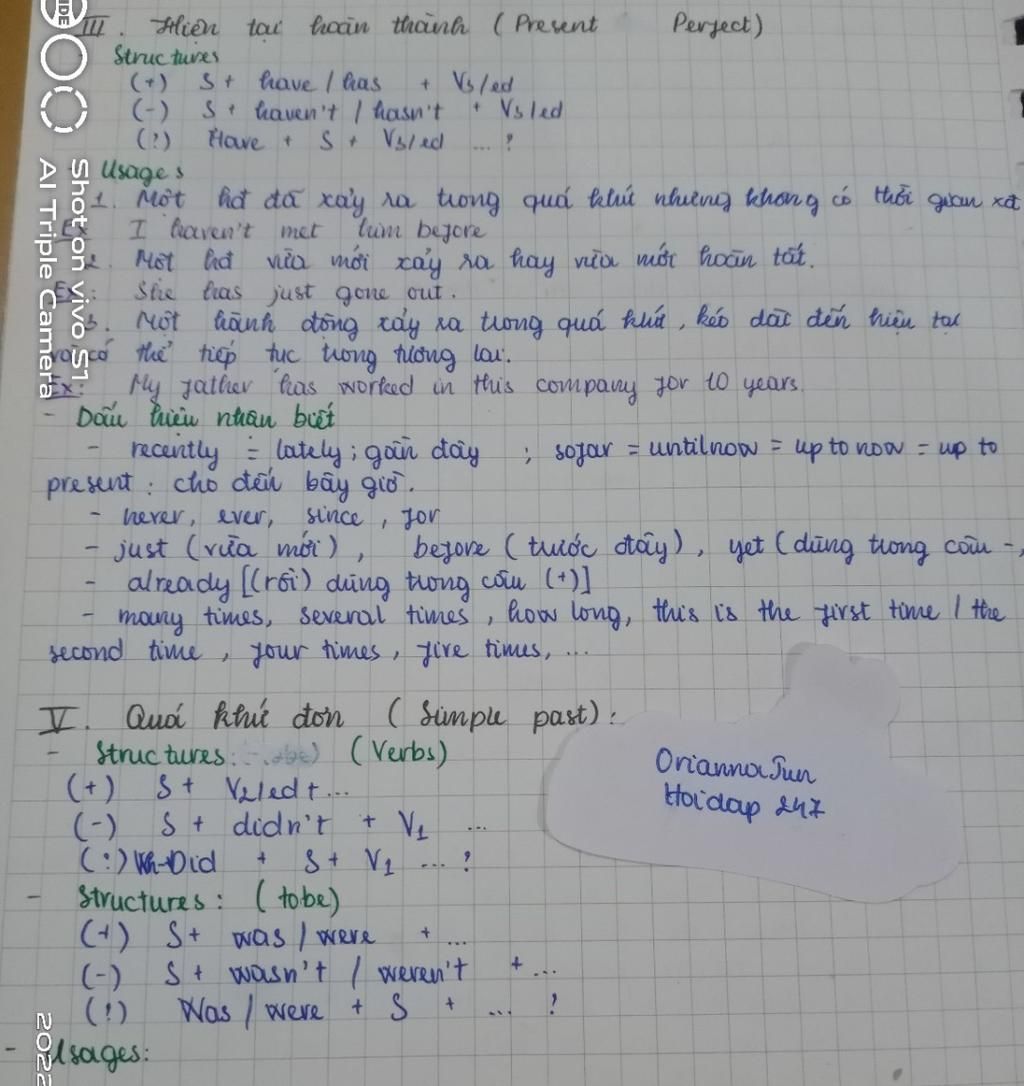 III. Hiện tại hoàn thành ( Present Perfect )
Structures
(+) S + have / has + V3/ed
(-) S + haven't / hasn't + V3/ed
(?) Have + S + V3/ed ... ?
Usages
1. Một hđ đã xảy ra trong quá khứ nhưng không có thời gian xđ
Ex I haven't met him before
2. Một hđ vừa mới xảy ra hay vừa mới hoàn tất.
Ex: She has just gone out.
3. Một hành động xảy ra trong quá khứ, kéo dài đến hiện tại
và có thể tiếp tục trong tương lai.
Ex: My father has worked in this company for 10 years.
- Dấu hiệu nhận biết
- recently = lately ; gần đây ; sofar = until now = up to now = up to
present : cho đến bây giờ.
- never, ever, since, for
- just (vừa mới), before ( trước đây), yet ( dùng trong câu -,
- already [(rồi) dùng trong câu (+)]
- many times, several times, how long, this is the first time / the
second time, four times, five times, ...
V. Quá khứ đơn ( Simple past ) :
- Structures: (Verbs)
(+) S + V2/ed + ...
(-) S + didn't + V1 ...
(?) Wh-Did + S + V1 ... ?
- Structures: ( tobe)
(+) S + was / were + ...
(-) S + wasn't / weren't + ...
(?) Was / were + S + ... ?
- Usages:
OriannaJun
Hoidap 247
Shot on vivo S1
AI Triple Camera
2022